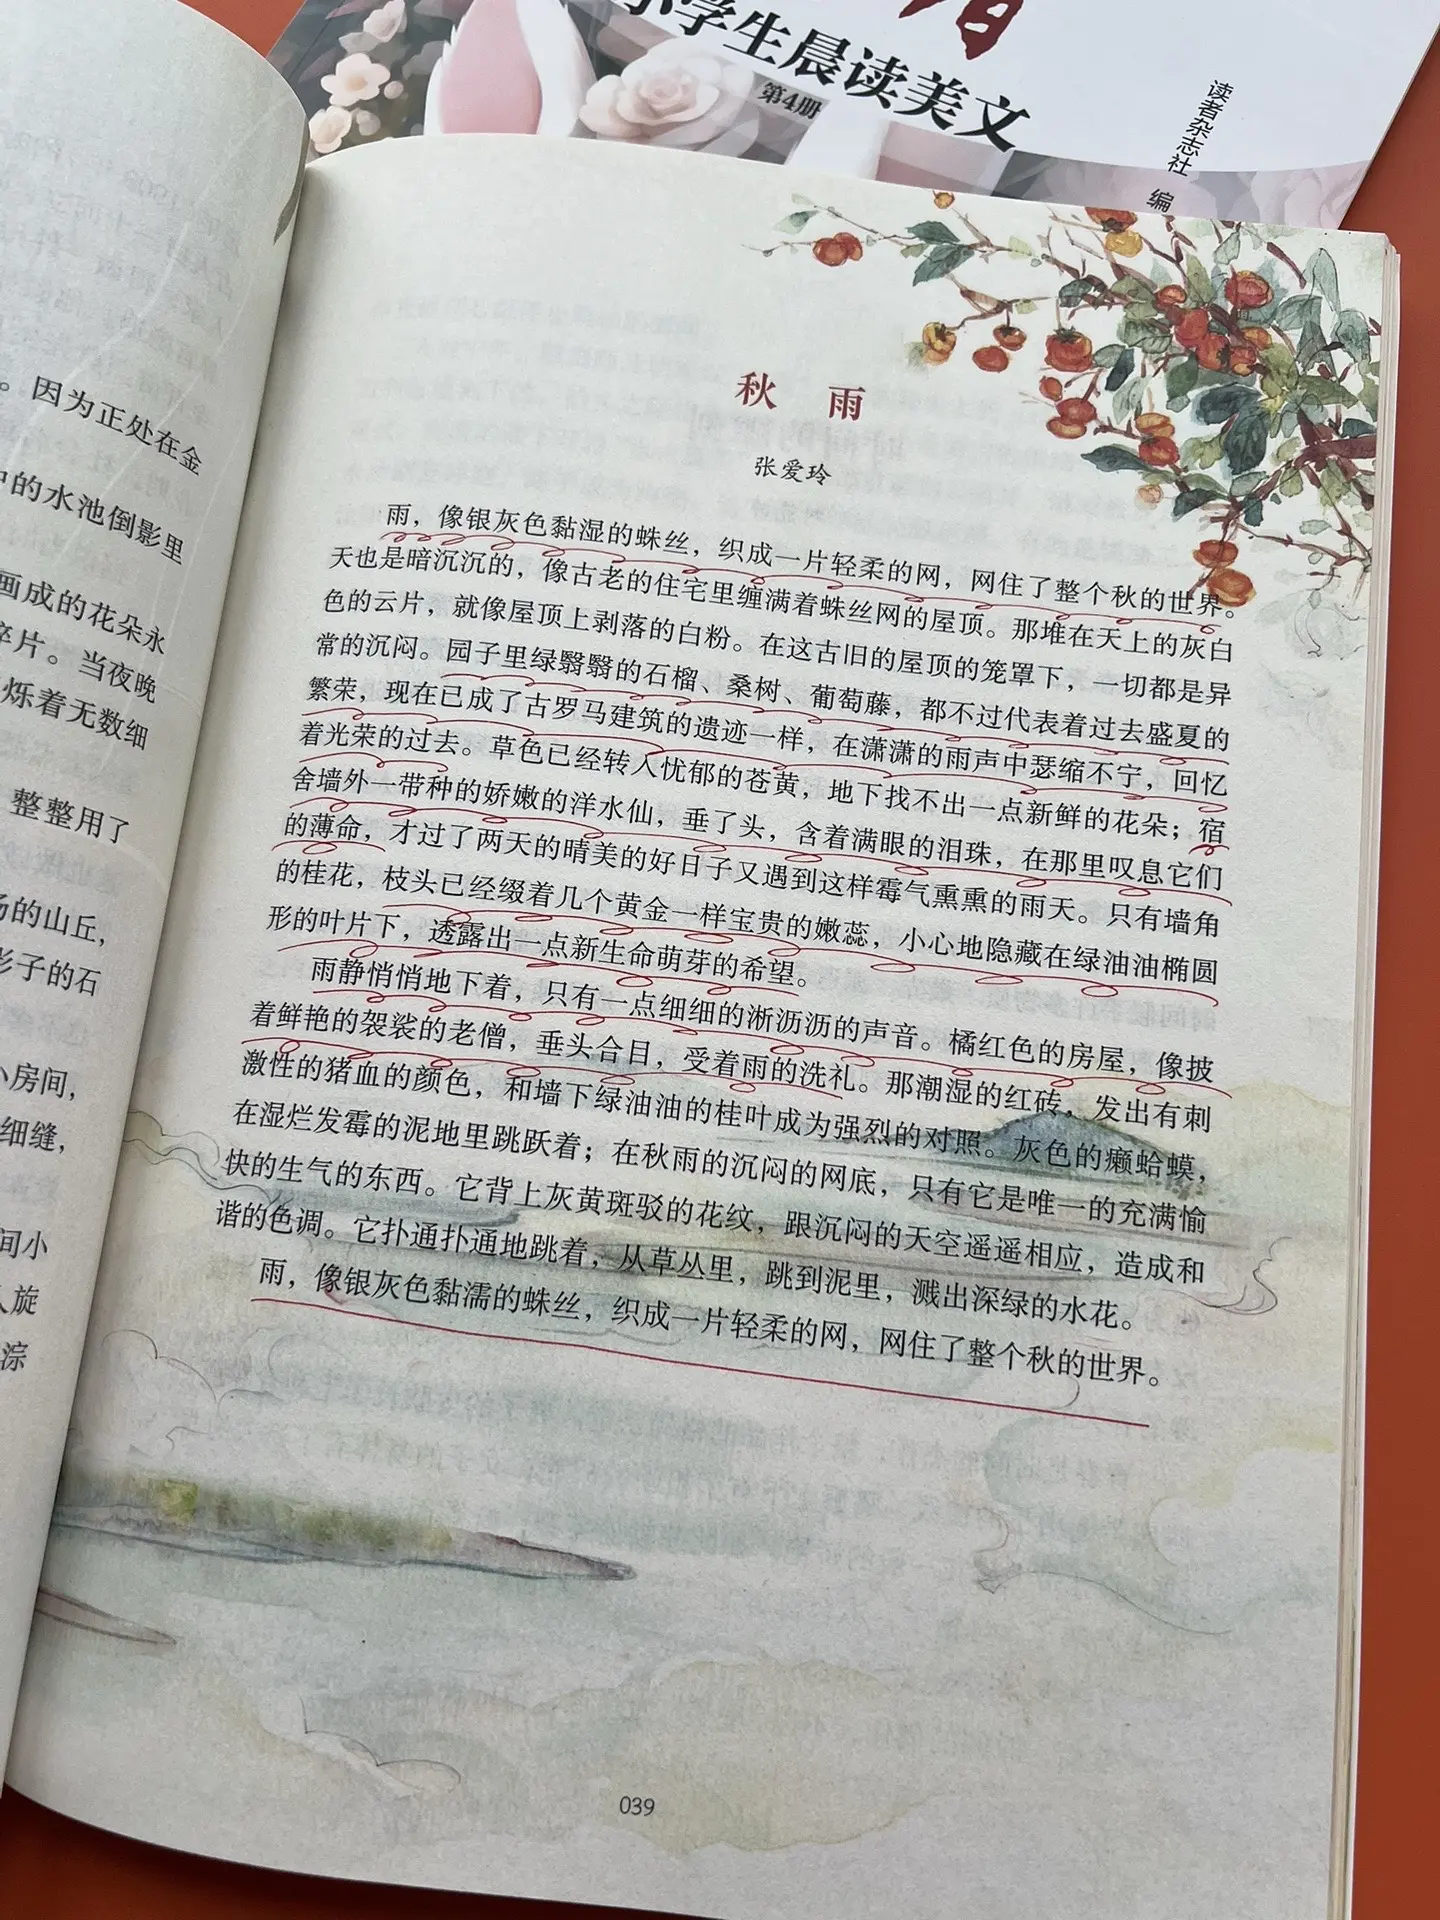 小学生晨读美文
第4册
读者杂志社 编
。因为正处在金
中的水池倒影里
画成的花朵永
碎片。当夜晚
烁着无数细
整整用了
的山丘，
影子的石
小房间，
细缝，
间小
人旋
淙
秋 雨
张爱玲
雨，像银灰色黏湿的蛛丝，织成一片轻柔的网，网住了整个秋的世界。
天也是暗沉沉的，像古老的住宅里缠满着蛛丝网的屋顶。那堆在天上的灰白
色的云片，就像屋顶上剥落的白粉。在这古旧的屋顶的笼罩下，一切都是异
常的沉闷。园子里绿翳翳的石榴、桑树、葡萄藤，都不过代表着过去盛夏的
繁荣，现在已成了古罗马建筑的遗迹一样，在潇潇的雨声中瑟缩不宁，回忆
着光荣的过去。草色已经转入忧郁的苍黄，地下找不出一点新鲜的花朵；宿
舍墙外一带种的娇嫩的洋水仙，垂了头，含着满眼的泪珠，在那里叹息它们
的薄命，才过了两天的晴美的好日子又遇到这样霉气熏熏的雨天。只有墙角
的桂花，枝头已经缀着几个黄金一样宝贵的嫩蕊，小心地隐藏在绿油油椭圆
形的叶片下，透露出一点新生命萌芽的希望。
雨静悄悄地下着，只有一点细细的淅沥沥的声音。橘红色的房屋，像披
着鲜艳的袈裟的老僧，垂头合目，受着雨的洗礼。那潮湿的红砖，发出有刺
激性的猪血的颜色，和墙下绿油油的桂叶成为强烈的对照。灰色的癞蛤蟆，
在湿烂发霉的泥地里跳跃着；在秋雨的沉闷的网底，只有它是唯一的充满愉
快的生气的东西。它背上灰黄斑驳的花纹，跟沉闷的天空遥遥相应，造成和
谐的色调。它扑通扑通地跳着，从草丛里，跳到泥里，溅出深绿的水花。
雨，像银灰色黏濡的蛛丝，织成一片轻柔的网，网住了整个秋的世界。
039